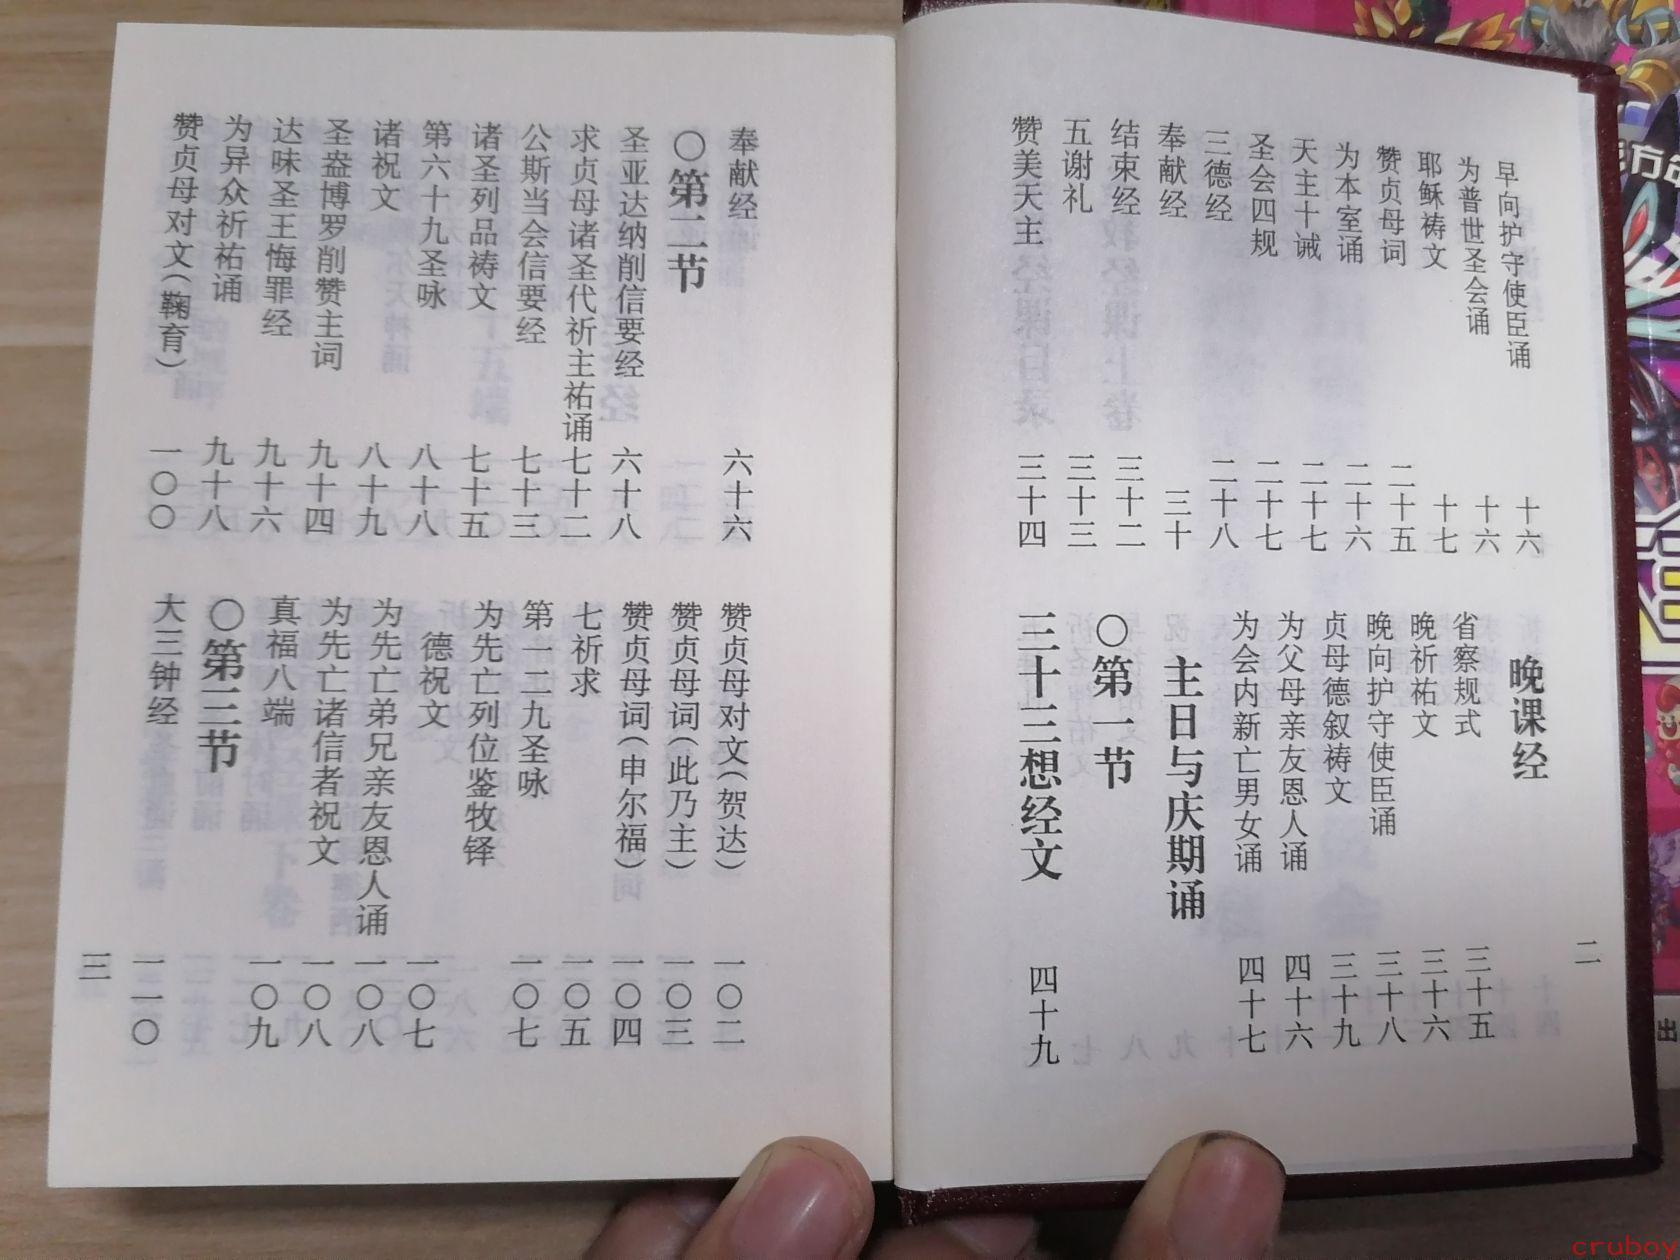 早向护守使臣诵 十六
为普世圣会诵 十六
耶稣祷文 十七
赞贞母词 二十五
为本室诵 二十六
天主十诫 二十七
圣会四规 二十七
三德经 二十八
奉献经 三十
结束经 三十二
五谢礼 三十三
赞美天主 三十四
晚课经
省察规式 三十五
晚祈祐文 三十六
晚向护守使臣诵 三十八
贞母德叙祷文 三十九
为父母亲友恩人诵 四十六
为会内新亡男女诵 四十七
主日与庆期诵
〇第一节
三十三想经文 四十九
二
奉献经 六十六
〇第二节
圣亚达纳削信要经 六十八
求贞母诸圣代祈主祐诵 七十二
公斯当会信要经 七十三
诸圣列品祷文 七十五
第六十九圣咏 八十八
诸祝文 八十九
圣盎博罗削赞主词 九十四
达味圣王悔罪经 九十六
为异众祈祐诵 九十八
赞贞母对文(鞠育) 一〇〇
赞贞母对文(贺达) 一〇二
赞贞母词(此乃主) 一〇三
赞贞母词(申尔福) 一〇四
七祈求 一〇五
第一二九圣咏 一〇七
为先亡列位鉴牧铎
德祝文 一〇七
为先亡弟兄亲友恩人诵 一〇八
为先亡诸信者祝文 一〇八
真福八端 一〇九
〇第三节
大三钟经 一一〇
三
方命
出
cruboy